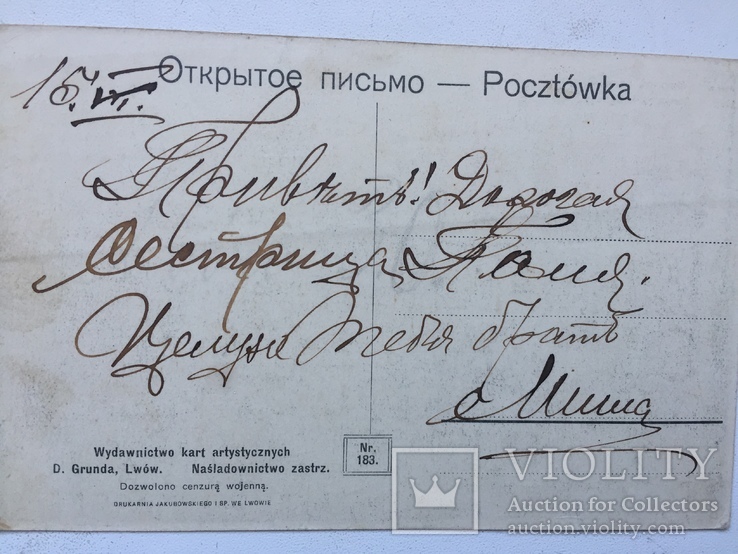 Открытое письмо — Pocztówka
15/VII.
Привѣтъ!! Дорогая
Сестрица, Поля.
Целую тебя братъ
Миша
Wydawnictwo kart artystycznych
D. Grunda, Lwów. Naśladownictwo zastrz.
Dozwolono cenzurą wojenną.
DRUKARNIA JAKUBOWSKIEGO I SP. WE LWOWIE
Nr.
183.
VIOLITY
Auction for Collectors
auction.violity.com